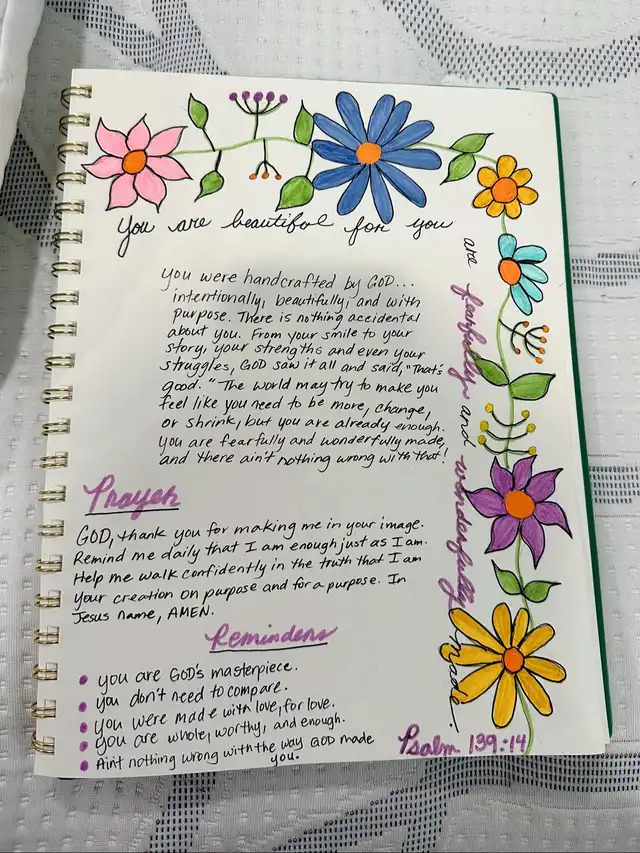 You are beautiful for you
are fearfully and wonderfully made.
you were handcrafted by GOD...
intentionally, beautifully, and with
purpose. There is nothing accidental
about you. From your smile to your
story, your strengths and even your
struggles, GOD saw it all and said, "That's
good." The world may try to make you
feel like you need to be more, change,
or shrink, but you are already enough.
you are fearfully and wonderfully made,
and there ain't nothing wrong with that!
Prayer
GOD, thank you for making me in your image.
Remind me daily that I am enough just as I am.
Help me walk confidently in the truth that I am
your creation on purpose and for a purpose. In
Jesus name, AMEN.
Reminders
• you are GOD's masterpiece.
• you don't need to compare.
• you were made with love, for love.
• you are whole, worthy, and enough.
• Ain't nothing wrong with the way GOD made
you.
Psalm 139:14